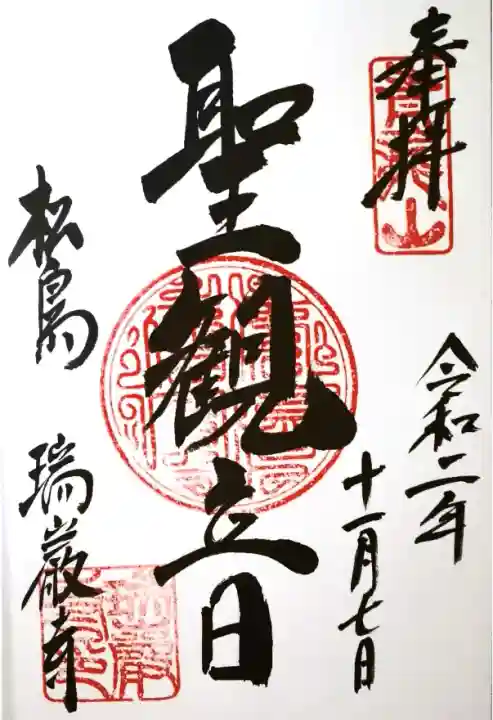 奉拝
令和二年
十一月七日
聖観立日
松島
瑞巌寺